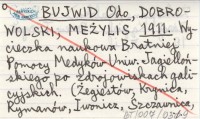 BUJWID Odo, DOBRO-
WOLSKI, MEŻYLIS 1911. Wy-
cieczka naukowa Bratniej
Pomocy Medyków Uniw. Jagielloń-
skiego po zdrojowiskach gali-
cyjskich. (Żegiestów, Krynica,
Rymanów, Iwonicz, Szczawnica,
BT1007/03